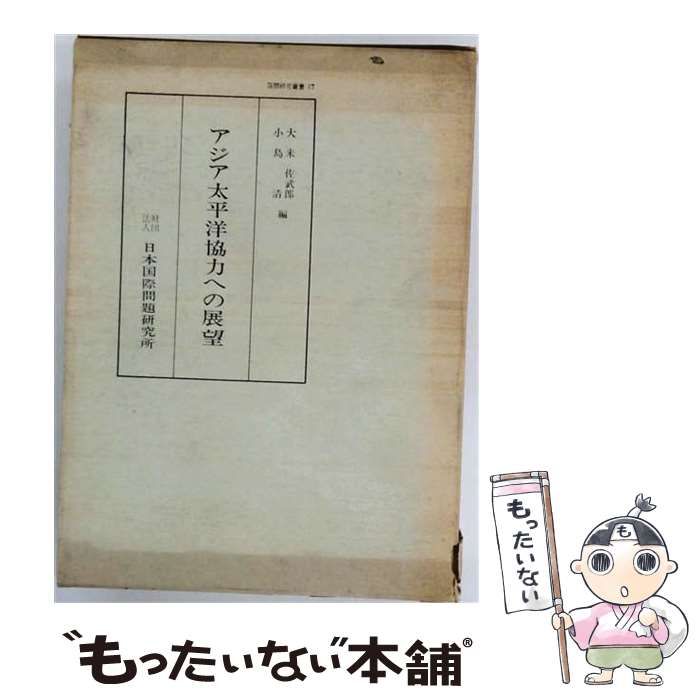 国問研究叢書 17
大来佐武郎
小島清 編
アジア太平洋協力への展望
社団法人 日本国際問題研究所
も
もったいない
"もったいない"本舗®